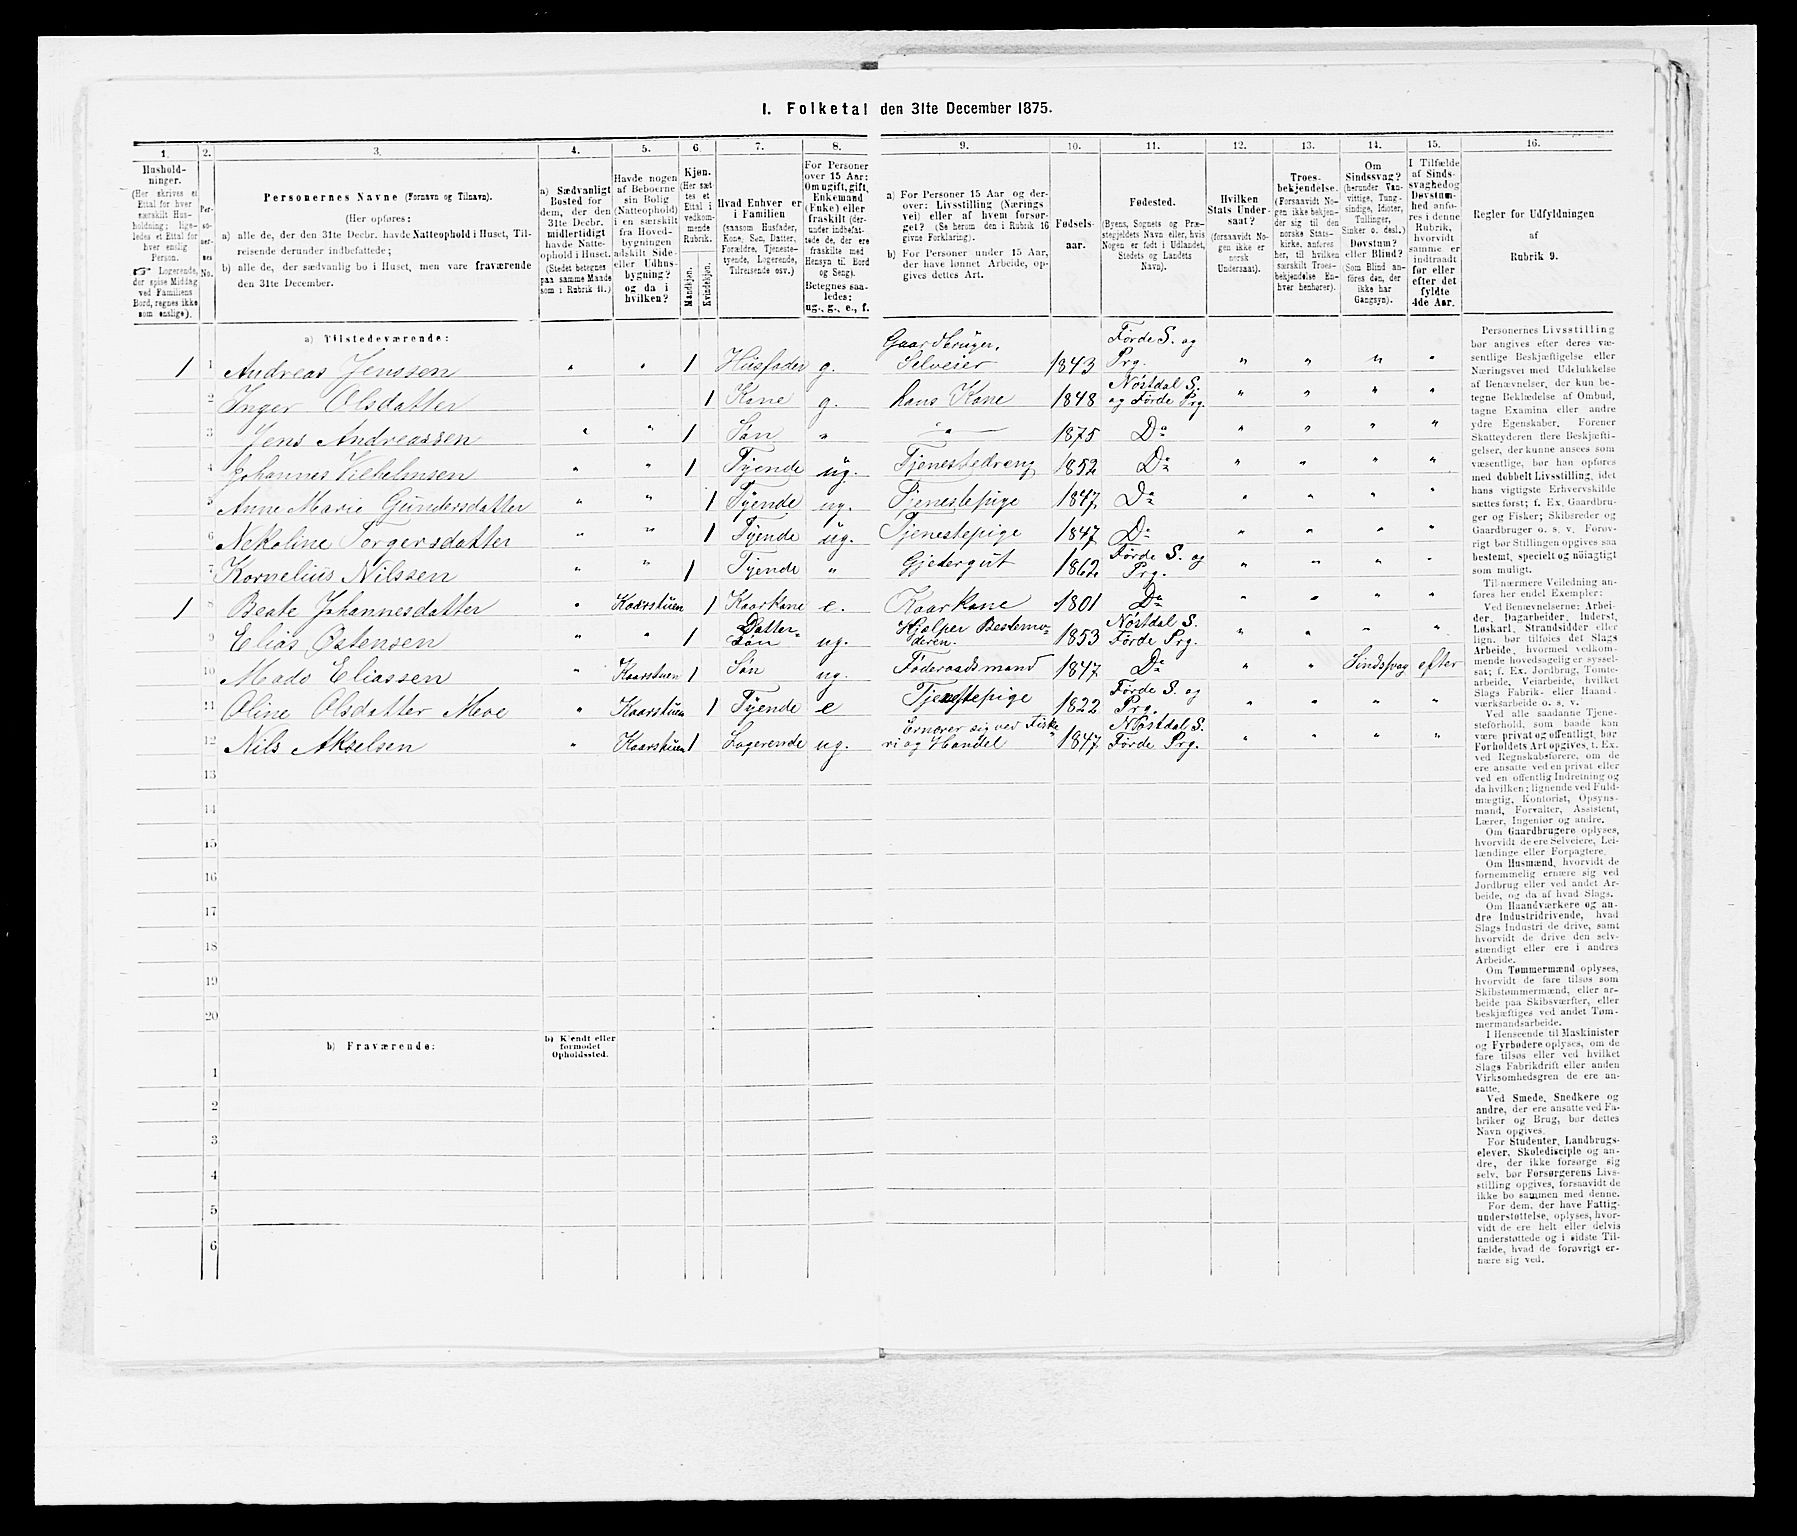 I. Folketal den 31te December 1875.
1. 2. 3. 4. 5. 6. 7. 8. 9. 10. 11. 12. 13. 14. 15. 16.
Husholdninger.
(Her skrives et Ettal for hver særskilt Husholdning; ligeledes et Ettal for hver enslig Person.
☞ Logerende, der spise Middag ved Familiens Bord, regnes ikke som enslige).
Personernes No.
Personernes Navne (Fornavn og Tilnavn).
(Her opføres:
a) alle de, der den 31te Decbr. havde Natteophold i Huset, Tilreisende derunder indbefattede;
b) alle de, der sædvanlig bo i Huset, men vare fraværende den 31te December.
a) Sædvanligt Bosted for dem, der den 31te Decbr. midlertidigt havde Natteophold i Huset.
(Stedet betegnes paa samme Maade som i Rubrik 11.)
Havde nogen af Beboerne sin Bolig (Natteophold) i en særskilt fra Hovedbygningen adskilt Side- eller Udhusbygning? og da i hvilken?
Kjøn.
(Her sættes et Ettal i vedkommende Rubrik.
Mandkjøn.
Kvindekjøn.
Hvad Enhver er i Familien
(saasom Husfader, Kone, Søn, Datter, Forældre, Tjenestetyende, Logerende, Tilreisende osv.)
For Personer over 15 Aar: Om ugift, gift, Enkemand (Enke) eller fraskilt (derunder indbefattede de, der ere fraskilte med Hensyn til Bord og Seng).
Betegnes saaledes: ug., g., e., f.
a) For Personer 15 Aar og derover: Livsstilling (Næringsvei) eller af hvem forsørget? (Se herom den i Rubrik 16 givne Forklaring).
b) For Personer under 15 Aar, der have lønnet Arbeide, opgives dettes Art.
Fødselsaar.
Fødested.
(Byens, Sognets og Præstegjeldets Navn eller, hvis Nogen er født i Udlandet, Stedets og Landets Navn).
Hvilken Stats Undersaat?
(forsaavidt Nogen ikke er norsk Undersaat).
Troesbekjendelse.
(Forsaavidt Nogen ikke bekjender sig til den norske Statskirke, anføres her, til hvilken særskilt Troesbekjendelse Enhver henhører).
Om Sindssvag? (herunder Vanvittige, Tungsindige, Idioter, Tullinger, Sinker o. desl.) Døvstum? eller Blind?
(Som Blind anføres den, der ikke har Gangsyn).
I Tilfælde af Sindssvaghed og Døvstumhed anføres i denne Rubrik, hvorvidt samme er indtraadt før eller efter det fyldte 4de Aar.
Regler for Udfyldningen
af
Rubrik 9.
a) Tilstedeværende:
1 1 Andreas Jenssen " " 1 Husfader g. Gaardbruger, Selveier 1843 Førde S. og Prg. " " " "
2 Inger Olsdatter 1 Kone g. hans Kone 1848 Nøstdal S. og Førde Prg. " " " "
3 Jens Andreassen " " 1 Søn " " 1875 Do " " " "
4 Johannes Vilhelmsen " " 1 Tyende ug. Tjenestedreng 1852 Do " " " "
5 Anne Marie Gundersdatter " " 1 Tyende ug. Tjenestepige 1847 Do " " " "
6 Nekoline Torgersdatter " " 1 Tyende ug. Tjenestepige 1847 Do " " " "
7 Kornelius Nilssen " " 1 Tyende " Gjetergut 1862 Førde S. og Prg. " " " "
1 8 Beate Johannesdatter " Kaarstuen 1 Kaarkone e. Kaarkone 1801 Do " " " "
9 Elias Østensen " " 1 Datter-Søn ug. Hjelper Bestemoderen. 1853 Nøstdal S. Førde Prg. " " " "
10 Mads Eliassen " Kaarstuen 1 Søn ug. Føderaadsmand 1847 Do " " Sindssvag efter
11 Oline Olsdatter Moe " Kaarstuen 1 Tyende e Tjenestepige 1822 Førde S. og Prg. " " " "
12 Nils Akselsen " Kaarstuen 1 Logerende ug. Ernærer sig ved Fiskeri og Handel 1847 Nøstdal S. Førde Prg. " " " "
13
14
15
16
17
18
19
20
b) Fraværende:
b) Kjendt eller formodet Opholdssted.
1
2
3
4
5
6
Personernes Livsstilling
bør angives efter deres væ-
sentlige Beskjæftigelse eller
Næringsvei med Udelukkelse
af Benævnelser, der kun be-
tegne Beklædelse af Ombud,
tagne Examina eller andre
ydre Egenskaber. Forener
Skatteyderen flere Beskjæfti-
gelser, der kunne ansees som
væsentlige, bør han opføres
med dobbelt Livsstilling, idet
hans vigtigste Erhvervskilde
sættes først; f. Ex. Gaardbru-
ger og Fisker; Skibsreder og
Gaardbruger o. s. v. Forøv-
rigt bør Stillingen opgives saa
bestemt, specielt og nøiagtigt
som muligt.
Til nærmere Veiledning an-
føres her endel Exempler:
Ved Benævnelserne: Arbei-
der, Dagarbeider, Inderst,
Løskarl, Strandsidder eller
lign. bør tilføies det Slags
Arbeide, hvormed vedkom-
mende hovedsagelig er syssel-
sat; f. Ex. Jordbrug, Tomte-
arbeide, Veiarbeide, hvilket
Slags Fabrik- eller Haand-
værksarbeide o. s. v.
Ved alle saadanne Tjene-
steforhold, som baade kan
være privat og offentligt, bør
Forholdets Art opgives, t. Ex.
ved Regnskabsførere, om de
ere ansatte ved en privat eller
ved en offentlig Indretning og
da hvilken; lignende ved Fuld-
mægtig, Kontorist, Opsyns-
mand, Forvalter, Assistent,
Lærer, Ingeniør og andre.
Om Gaardbrugere oplyses,
hvorvidt de ere Selveiere, Lei-
lændinge eller Forpagtere.
Om Husmænd, hvorvidt de
fornemmelig ernære sig ved
Jordbrug eller ved andet Ar-
beide, og da af hvad Slags.
Om Haandværkere og an-
dre Industridrivende, hvad
Slags Industri de drive, samt
hvorvidt de drive den selv-
stændigt eller ere i andres
Arbeide.
Om Tømmermænd oplyses,
hvorvidt de fare tilsøs som
Skibstømmermænd, eller ar-
beide paa Skibsværfter, eller
beskjæftiges ved andet Tøm-
mermandsarbeide.
I Henseende til Maskinister
og Fyrbødere oplyses, om de
fare tilsøs eller ved hvilket
Slags Fabrikdrift eller anden
Virksomhedsgren de ere an-
satte.
Ved Smede, Snedkere og
andre, der ere ansatte ved Fa-
briker og Brug, bør dettes
Navn opgives.
For Studenter, Landbrugs-
elever, Skoledisciple og an-
dre, der ikke forsørge sig
selv, bør Forsørgerens Livs-
stilling opgives, forsaavidt de
ikke bo sammen med denne.
For dem, der have Fattig-
understøttelse, oplyses, hvor-
vidt de ere helt eller delvis
understøttede og i sidste Til-
fælde, hvad de forøvrigt er-
nære sig ved.